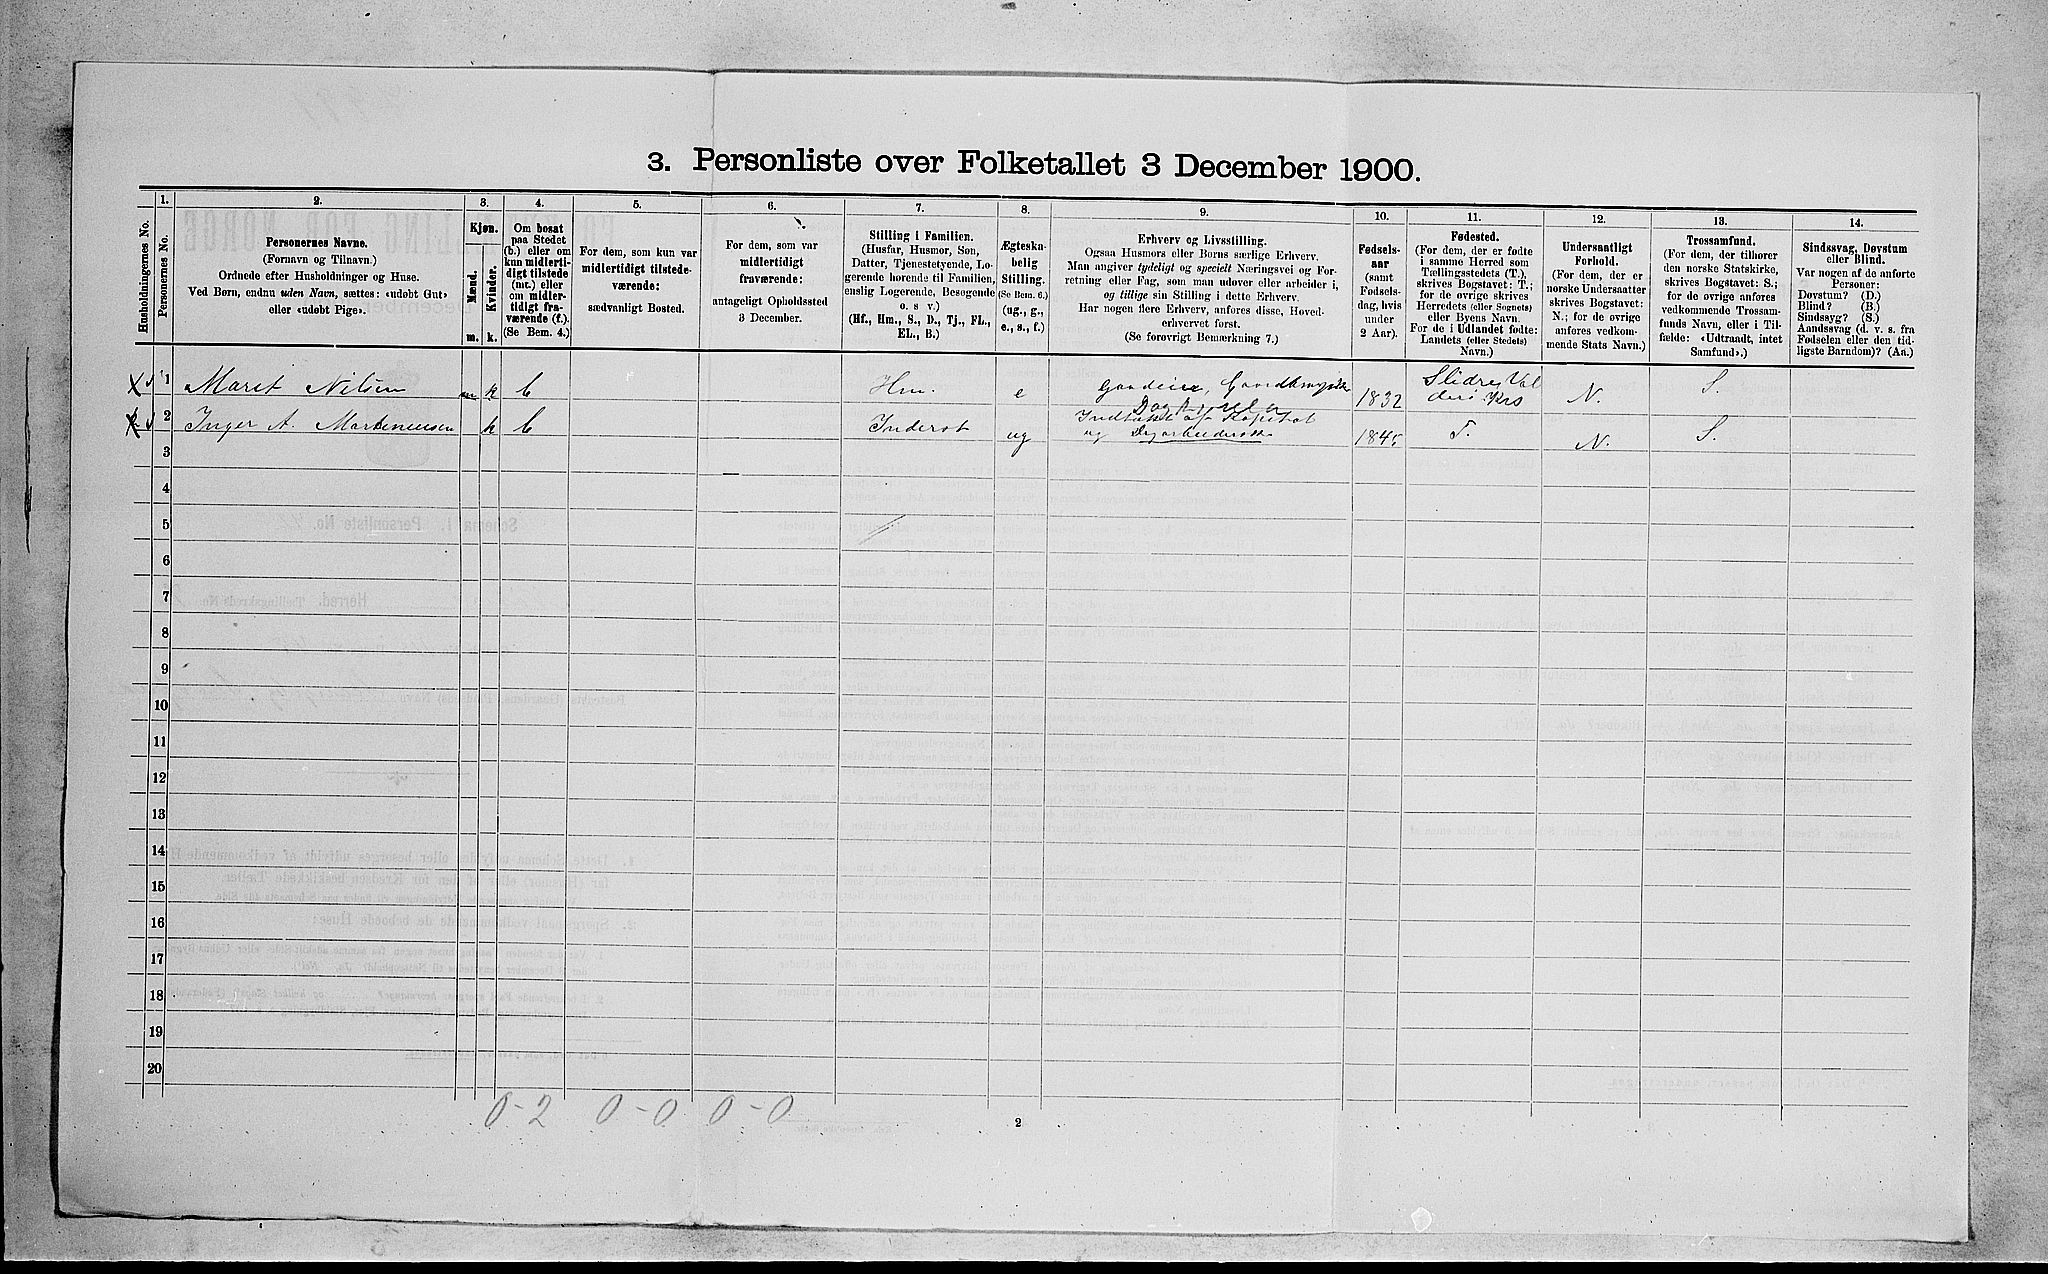 3. Personliste over Folketallet 3 December 1900.
Husholdningernes No.
1.
Personernes No.
2.
Personernes Navne.
(Fornavn og Tilnavn.)
Ordnede efter Husholdninger og Huse.
Ved Børn, endnu uden Navn, sættes: «udøbt Gut»
eller «udøbt Pige».
3.
Kjøn.
Mænd.
Kvinder.
m.
k.
4.
Om bosat
paa Stedet
(b.) eller om
kun midlerti-
digt tilstede
(mt.) eller
om midler-
tidigt fra-
værende (f.).
(Se Bem. 4.)
5.
For dem, som kun var
midlertidigt tilstede-
værende:
sædvanligt Bosted.
6.
For dem, som var
midlertidigt
fraværende:
antageligt Opholdssted
3 December.
7.
Stilling i Familien.
(Husfar, Husmor, Søn,
Datter, Tjenestetyende, Lo-
gerende hørende til Familien,
enslig Logerende, Besøgende
o. s v.)
(Hf., Hm., S., D., Tj., FL.,
EL., B.)
8.
Ægteska-
belig
Stilling.
(Se Bem. 6.)
(ug., g.,
e., s., f.)
9.
Erhverv og Livsstilling.
Ogsaa Husmors eller Børns særlige Erhverv.
Man angiver tydeligt og specielt Næringsvei og For-
retning eller Fag, som man udover eller arbeider i,
og tillige sin Stilling i dette Erhverv.
Har nogen flere Erhverv, anføres disse, Hoved-
erhvervet først.
(Se forøvrigt Bemærkning 7.)
10.
Fødsels-
aar
(samt
Fødsels-
dag, hvis
under
2 Aar).
11.
Fødested.
(For dem, der er fødte
i samme Herred som
Tællingsstedets (T.),
skrives Bogstavet: T.;
for de øvrige skrives
Herredets (eller Sognets)
eller Byens Navn.
For de i Udlandet fødte:
Landets (eller Stedets)
Navn.)
12.
Undersaatligt
Forhold.
(For dem, der er
norske Undersaatter
skrives Bogstavet:
N.; for de øvrige
anføres vedkom-
mende Stats Navn.)
13.
Trossamfund.
(For dem, der tilhører
den norske Statskirke,
skrives Bogstavet: S.;
for de øvrige anføres
vedkommende Trossam-
funds Navn, eller i Til-
fælde: «Udtraadt, intet
Samfund».)
14.
Sindssvag, Døvstum
eller Blind.
Var nogen af de anførte
Personer:
Døvstum? (D.)
Blind? (B.)
Sindssyg? (S.)
Aandssvag (d. v. s. fra
Fødselen eller den tid-
ligste Barndom)? (Aa.)
1 Maret Nilsen k b Hm. e 1832 N. S.
2 Inger A. k b ug Indtækt af Kapital og T. N. S.
3
4
5
6
7
8
9
10
11
12
13
14
15
16
17
18
19
20
0-2 0-0 0-0
2